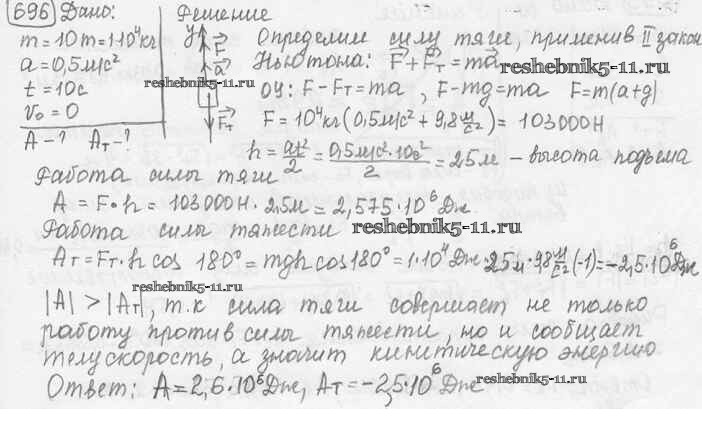 696 Дано: Решение
m = 10т = 1·10⁴кг
a = 0,5м/с²
t = 10с
v₀ = 0
A – ? Aт – ?
y F a Fт
Определим силу тяги, применив II закон
Ньютона: F + Fт = ma
reshebnik5-11.ru
reshebnik5-11.ru
оу: F – Fт = ma, F – mg = ma F = m(a+g)
F = 10⁴кг(0,5м/с² + 9,8м/с²) = 103000Н
h = at²/2 = 0,5м/с²·10с²/2 = 25м – высота подъема
Работа силы тяги
A = F·h = 103000Н · 25м = 2,575·10⁶Дж
Работа силы тяжести
reshebnik5-11.ru
Aт = Fт·h cos 180° = mgh cos 180° = 1·10⁴Дж·25м·9,8м/с²(-1) = –2,5·10⁶Дж
|A| > |Aт|, т.к сила тяги совершает не только
работу против силы тяжести, но и сообщает
телу скорость, а значит кинетическую энергию
Ответ: A = 2,6·10⁶Дж, Aт = –2,5·10⁶Дж
reshebnik5-11.ru